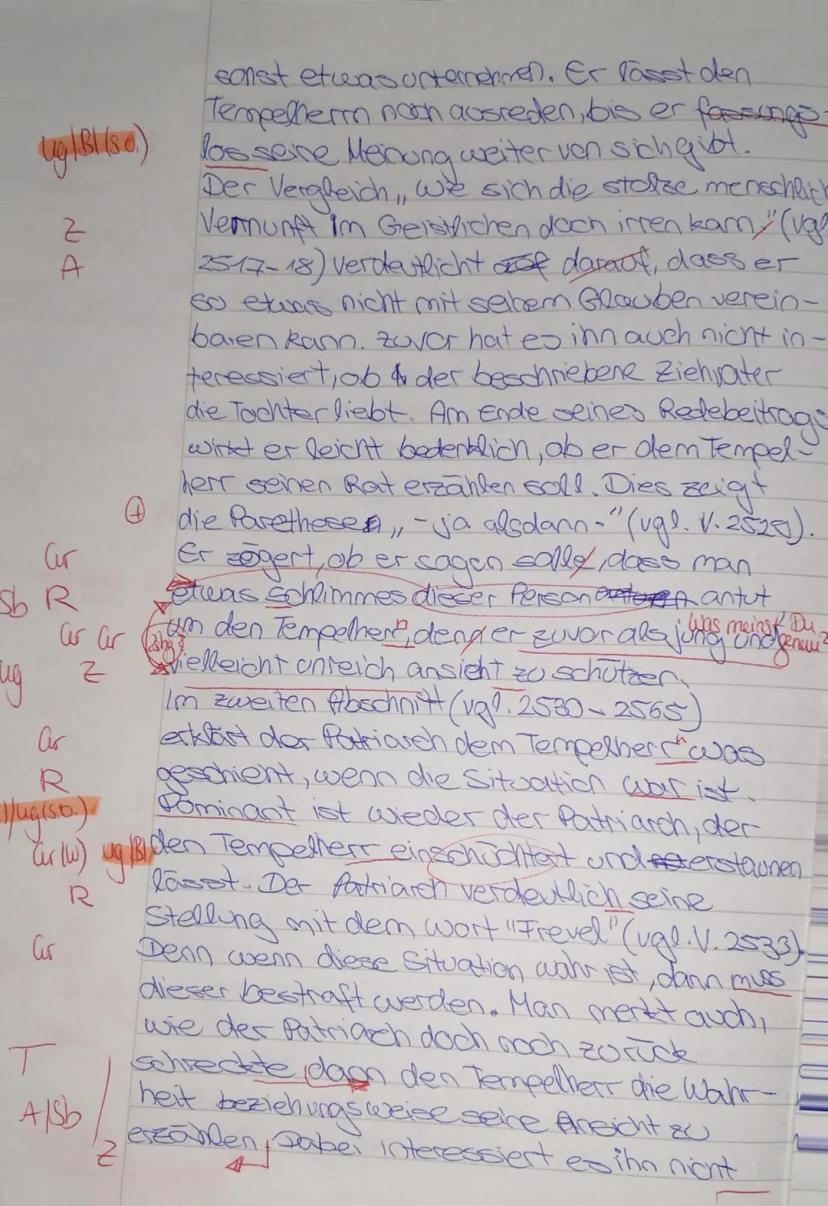 sonst etwas unternehmen. Er lässt den
Tempelherrn noch ausreden, bis er fassungs-
ug/Bl (s.o.) los seine Meinung weiter von sich gibt.
Der Vergleich „wie sich die stolze menschlich
Z Vernunft im Geistlichen doch irren kann" (vgl
A 2517-18) verdeutlicht darauf, dass er
so etwas nicht mit seinem Glauben verein-
baren kann. Zuvor hat es ihn auch nicht in-
teressiert, ob der beschriebene Ziehvater
die Tochter liebt. Am Ende seines Redebeitrags
wirkt er leicht bedenklich, ob er dem Tempel-
herr seinen Rat erzählen soll. Dies zeigt
+ die Parethese „-ja alsdann-" (vgl. V. 2520).
Gr Er zögert, ob er sagen solle, dass man
Sb R etwas schlimmes dieser Person antut
was meinst Du genau?
Gr Gr um den Tempelherrn, den er zuvor als jung und
ug Z vielleicht unreich ansieht zu schützen.
Im zweiten Abschnitt (vgl. 2530-2565)
Gr erklärt der Patriarch dem Tempelherr was
R geschieht, wenn die Situation war ist.
ug (s.o.) Dominant ist wieder der Patriarch, der
Gr (W) ug/Bl den Tempelherr einschüchtert und erstaunen
R lässt. Der Patriarch verdeutlich seine
Stellung mit dem Wort "Frevel" (vgl. V. 2533)
Gr Denn wenn diese Situation wahr ist, dann muss
dieser bestraft werden. Man merkt auch,
wie der Patriarch doch noch zurück
T schreckte dann den Tempelherr die Wahr-
A/Sb heit beziehungsweise seine Ansicht zu
Z erzählen, Dabei interessiert es ihn nicht